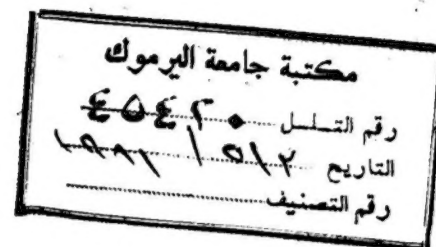 مكتبة جامعة اليرموك
رقم التسلسل ٤٥٤٢٠
التاريخ ١٩٨١ / ٥/٢
رقم التصنيف